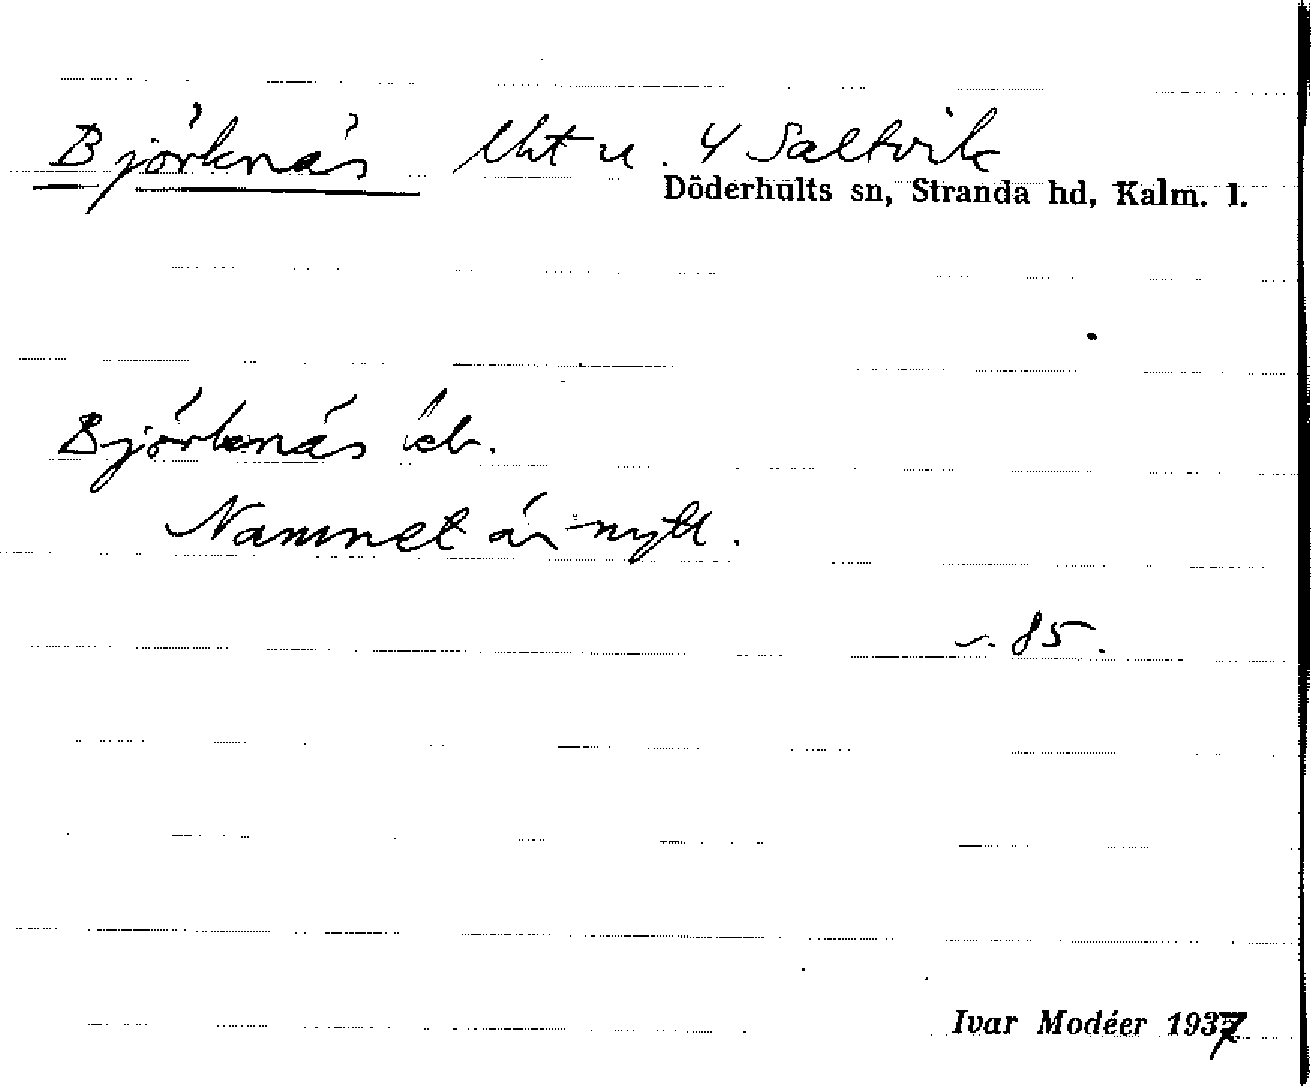 Björknäs lht u. 4 Saltvik
Döderhults sn, Stranda hd, Kalm. l.
Björknäs ek.
Namnet är nytt.
s. 85.
Ivar Modéer 1937